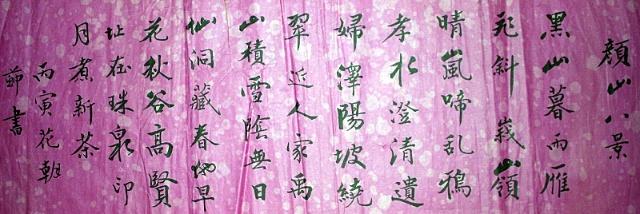 顏山八景
黑山暮雨雁
飛斜 峩嶺
晴嵐啼亂鴉
孝水澄清遺
婦澤陽坡繞
翠近人家禹
山積雪陰無日
仙洞藏春早
花秋谷高賢
址在珠泉印
月煮新茶
丙寅花朝
書